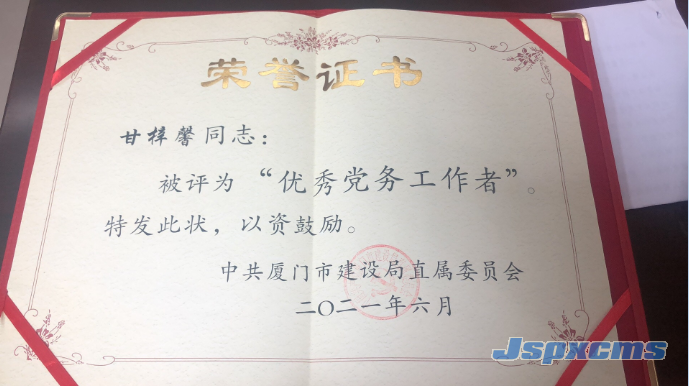 荣誉证书
甘梓馨同志：
被评为“优秀党务工作者”。
特发此状，以资鼓励。
中共厦门市建设局直属委员会
二〇二一年六月
Jspxcms